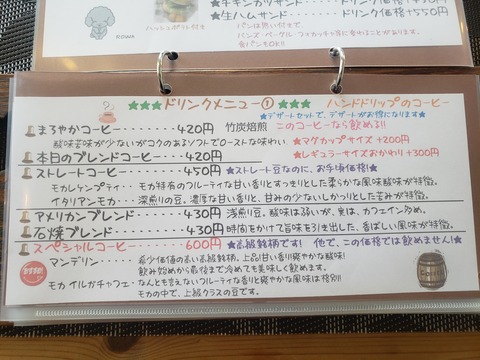 ★チキンカツサンド……ドリンク価格+450円
★生ハムサンド………ドリンク価格+550円
パンは思い付きで、
バンズ・ベーグル・フォカッチャ等に変わることがあります。
食パンもOK!!
ハッシュポテト付き
★★★ドリンクメニュー①★★★ ハンドドリップのコーヒー
★デザートセットで、デザートがお得になります★
まろやかコーヒー………420円 竹炭焙煎 このコーヒーなら飲める!!
酸味苦味が少ないがコクのあるソフトでローストな味わい ★マグカップサイズ +200円
本日のブレンドコーヒー…420円 ★レギュラーサイズおかわり +300円
ストレートコーヒー……450円 ★ストレート豆なのに、お手頃価格!★
モカレケンプティ…モカ特有のフルーティな甘い香りとすっきりとした柔らかな風味酸味が特徴。
イタリアンモカ…深煎りの豆、濃厚な甘い香りと、甘みの少ないしかっりとした苦みが特徴。
アメリカンブレンド……430円 浅煎り豆。酸味は弱いが、実は、カフェイン多め。
石焼ブレンド………430円 時間をかけて旨味を引き出した、香ばしい風味が特徴。
スペシャルコーヒー……600円 ★高級銘柄です! 他で、この価格では飲めません!★
マンデリン……希少価値の高い高級銘柄。上品な甘い香りと爽やかな酸味!
飲み始めから最後まで冷めても美味しく飲めます。
モカ イルガチャフェ…なんとも言えないフルーティな香りと爽やかな風味は格別!!
モカの中で、上級クラスの豆です。